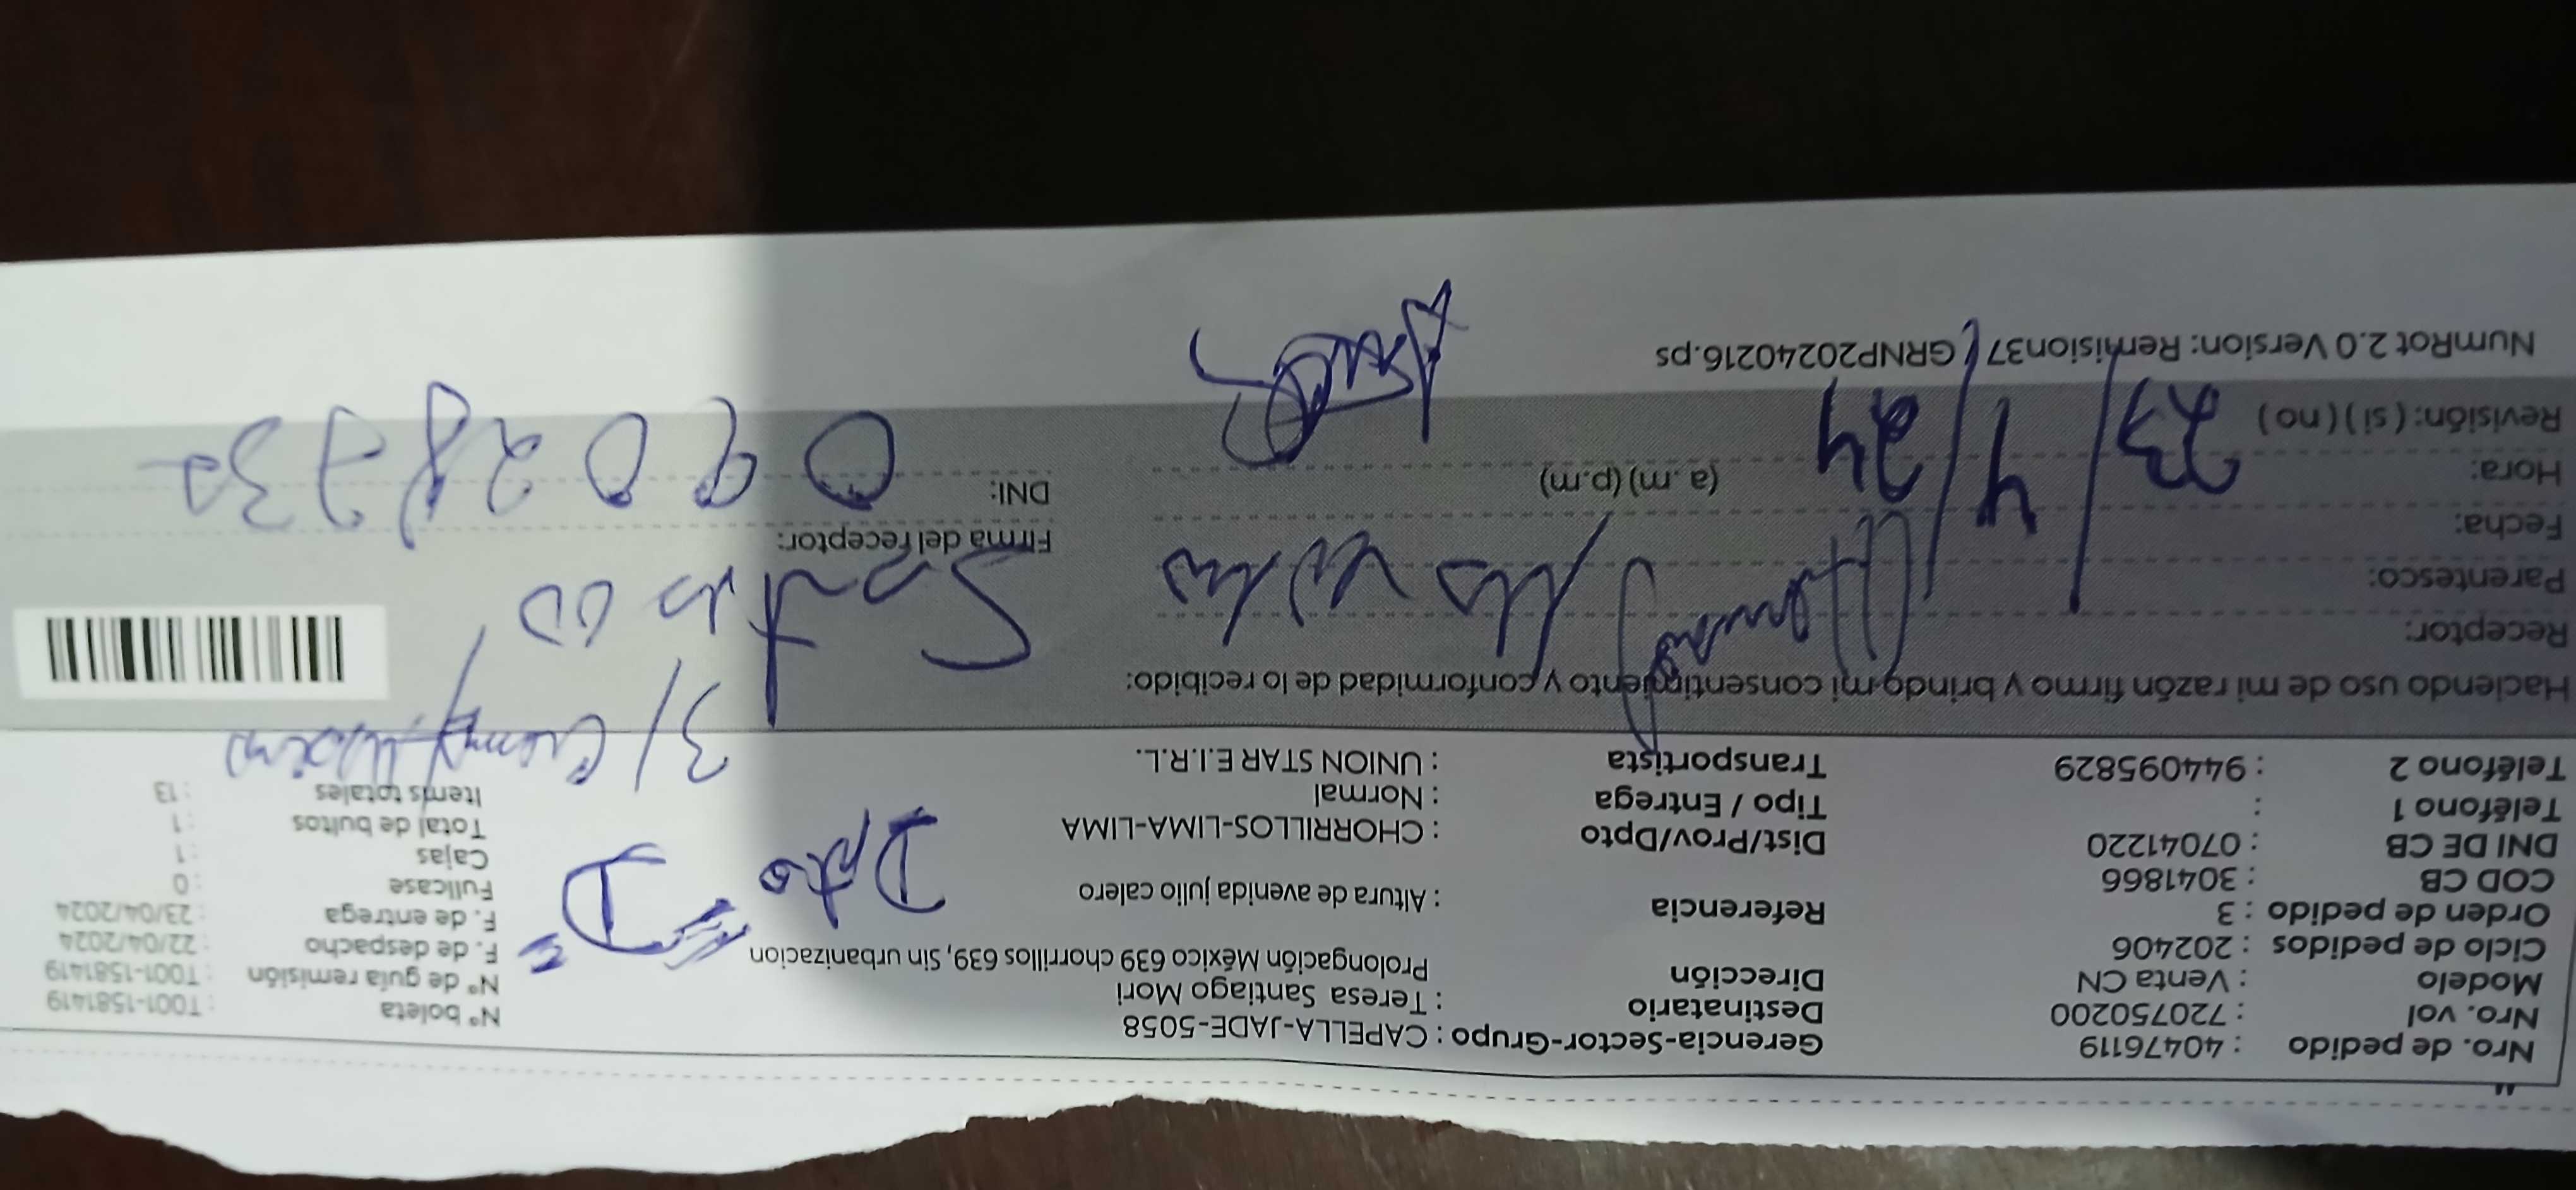 Nro. de pedido : 40476119
Nro. vol : 720750200
Modelo : Venta CN
Ciclo de pedidos : 202406
Orden de pedido : 3
COD CB : 3041866
DNI DE CB : 07041220
Teléfono 1 :
Teléfono 2 : 944095829
Gerencia-Sector-Grupo : CAPELLA-JADE-5058
Destinatario : Teresa Santiago Mori
Dirección Prolongación México 639 chorrillos 639, Sin urbanizacion
Referencia : Altura de avenida julio calero
Dist/Prov/Dpto : CHORRILLOS-LIMA-LIMA
Tipo / Entrega : Normal
Transportista : UNION STAR E.I.R.L.
N° boleta : T001-1581419
N° de guía remisión : T001-1581419
F. de despacho : 22/04/2024
F. de entrega : 23/04/2024
Fullcase : 0
Cajas : 1
Total de bultos : 1
Items totales : 13
Dpto = D =
Haciendo uso de mi razón firmo y brindo mi consentimiento y conformidad de lo recibido:
Receptor:
Parentesco:
Fecha:
23/4/24
Hora: (a.m) (p.m)
Revisión: ( si ) ( no )
Firma del receptor:
DNI:
NumRot 2.0 Version: Remision37 GRNP20240216.ps